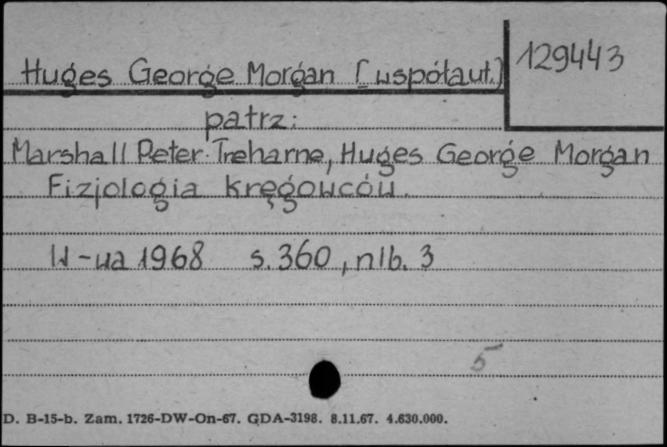 129443
Huges George Morgan [współaut.)
patrz:
Marshall Peter Treharne, Huges George Morgan
Fizjologia kręgowców.
W-wa 1968 s. 360, nlb. 3
5
D. B-15-b. Zam. 1726-DW-On-67. GDA-3198. 8.11.67. 4.630.000.